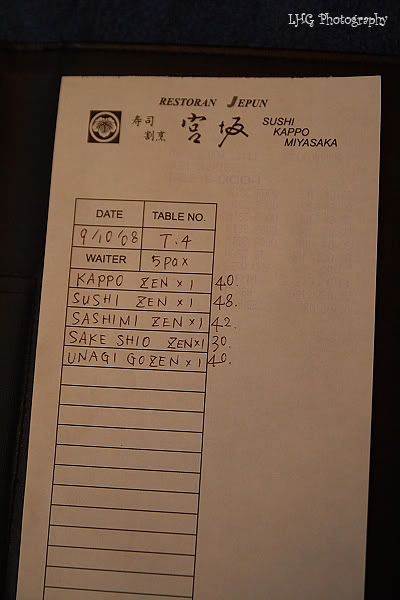 LHG Photography
RESTORAN JEPUN
寿司 割烹 宮坂 SUSHI KAPPO MIYASAKA
DATE TABLE NO.
9/10/'08 T.4
WAITER 5pax
KAPPO ZEN x 1 40.
SUSHI ZEN x 1 48.
SASHIMI ZEN x 1 42.
SAKE SHIO ZEN x 1 30.
UNAGI GOZEN x 1 40.